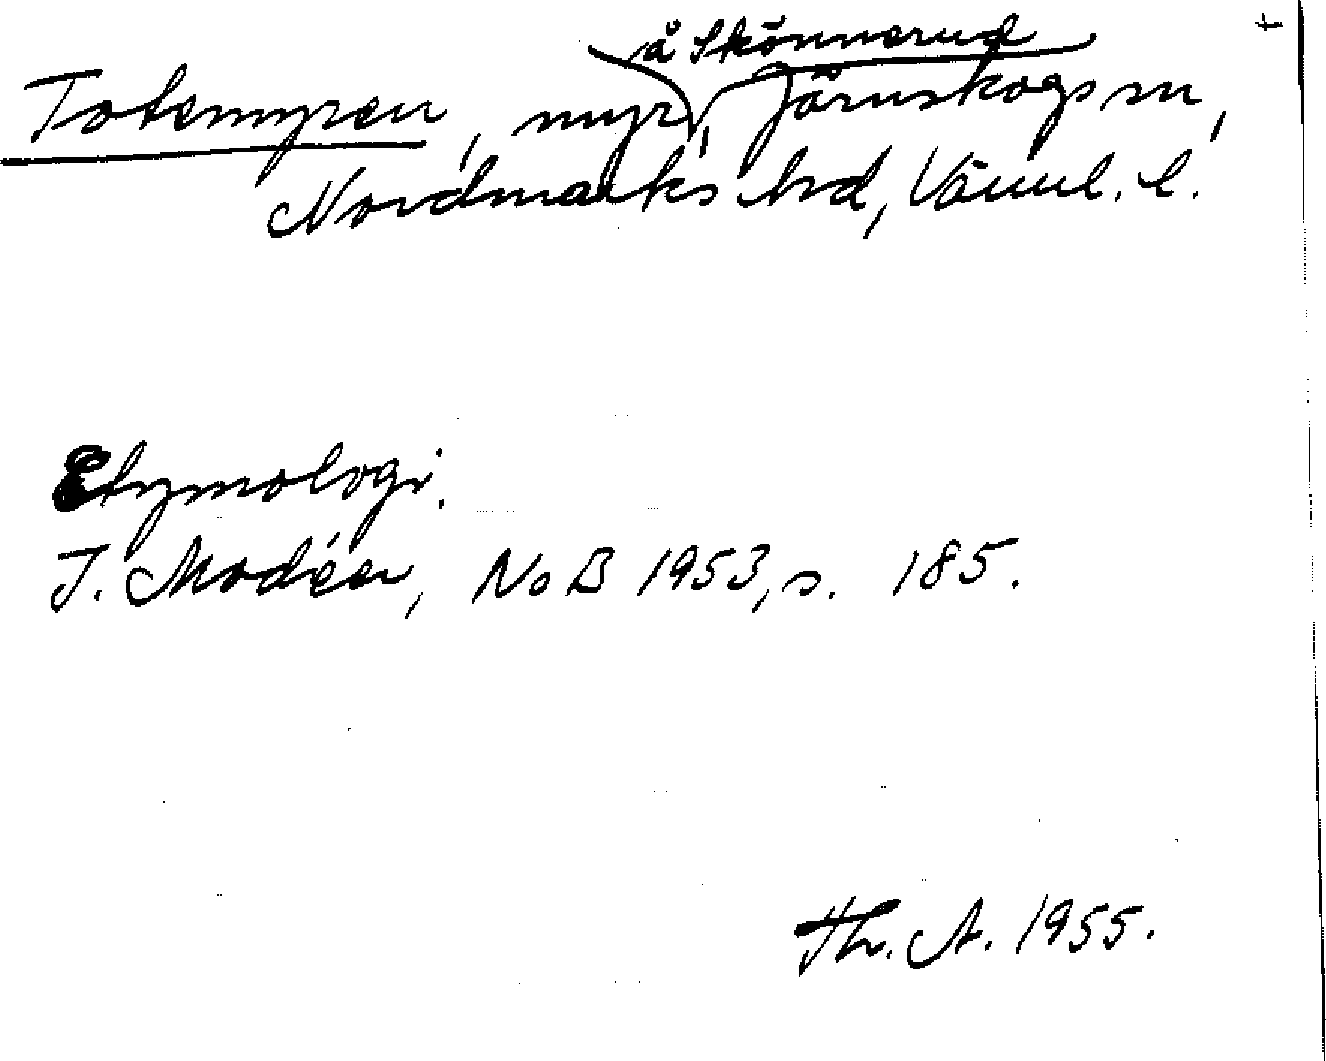 å Skönnerud
Totemyren, myr, Järnskogs sn,
Nordmarks hd, Värml. l.
Etymologi.
J. Modéer, NoB 1953, s. 185.
Th. A. 1955.